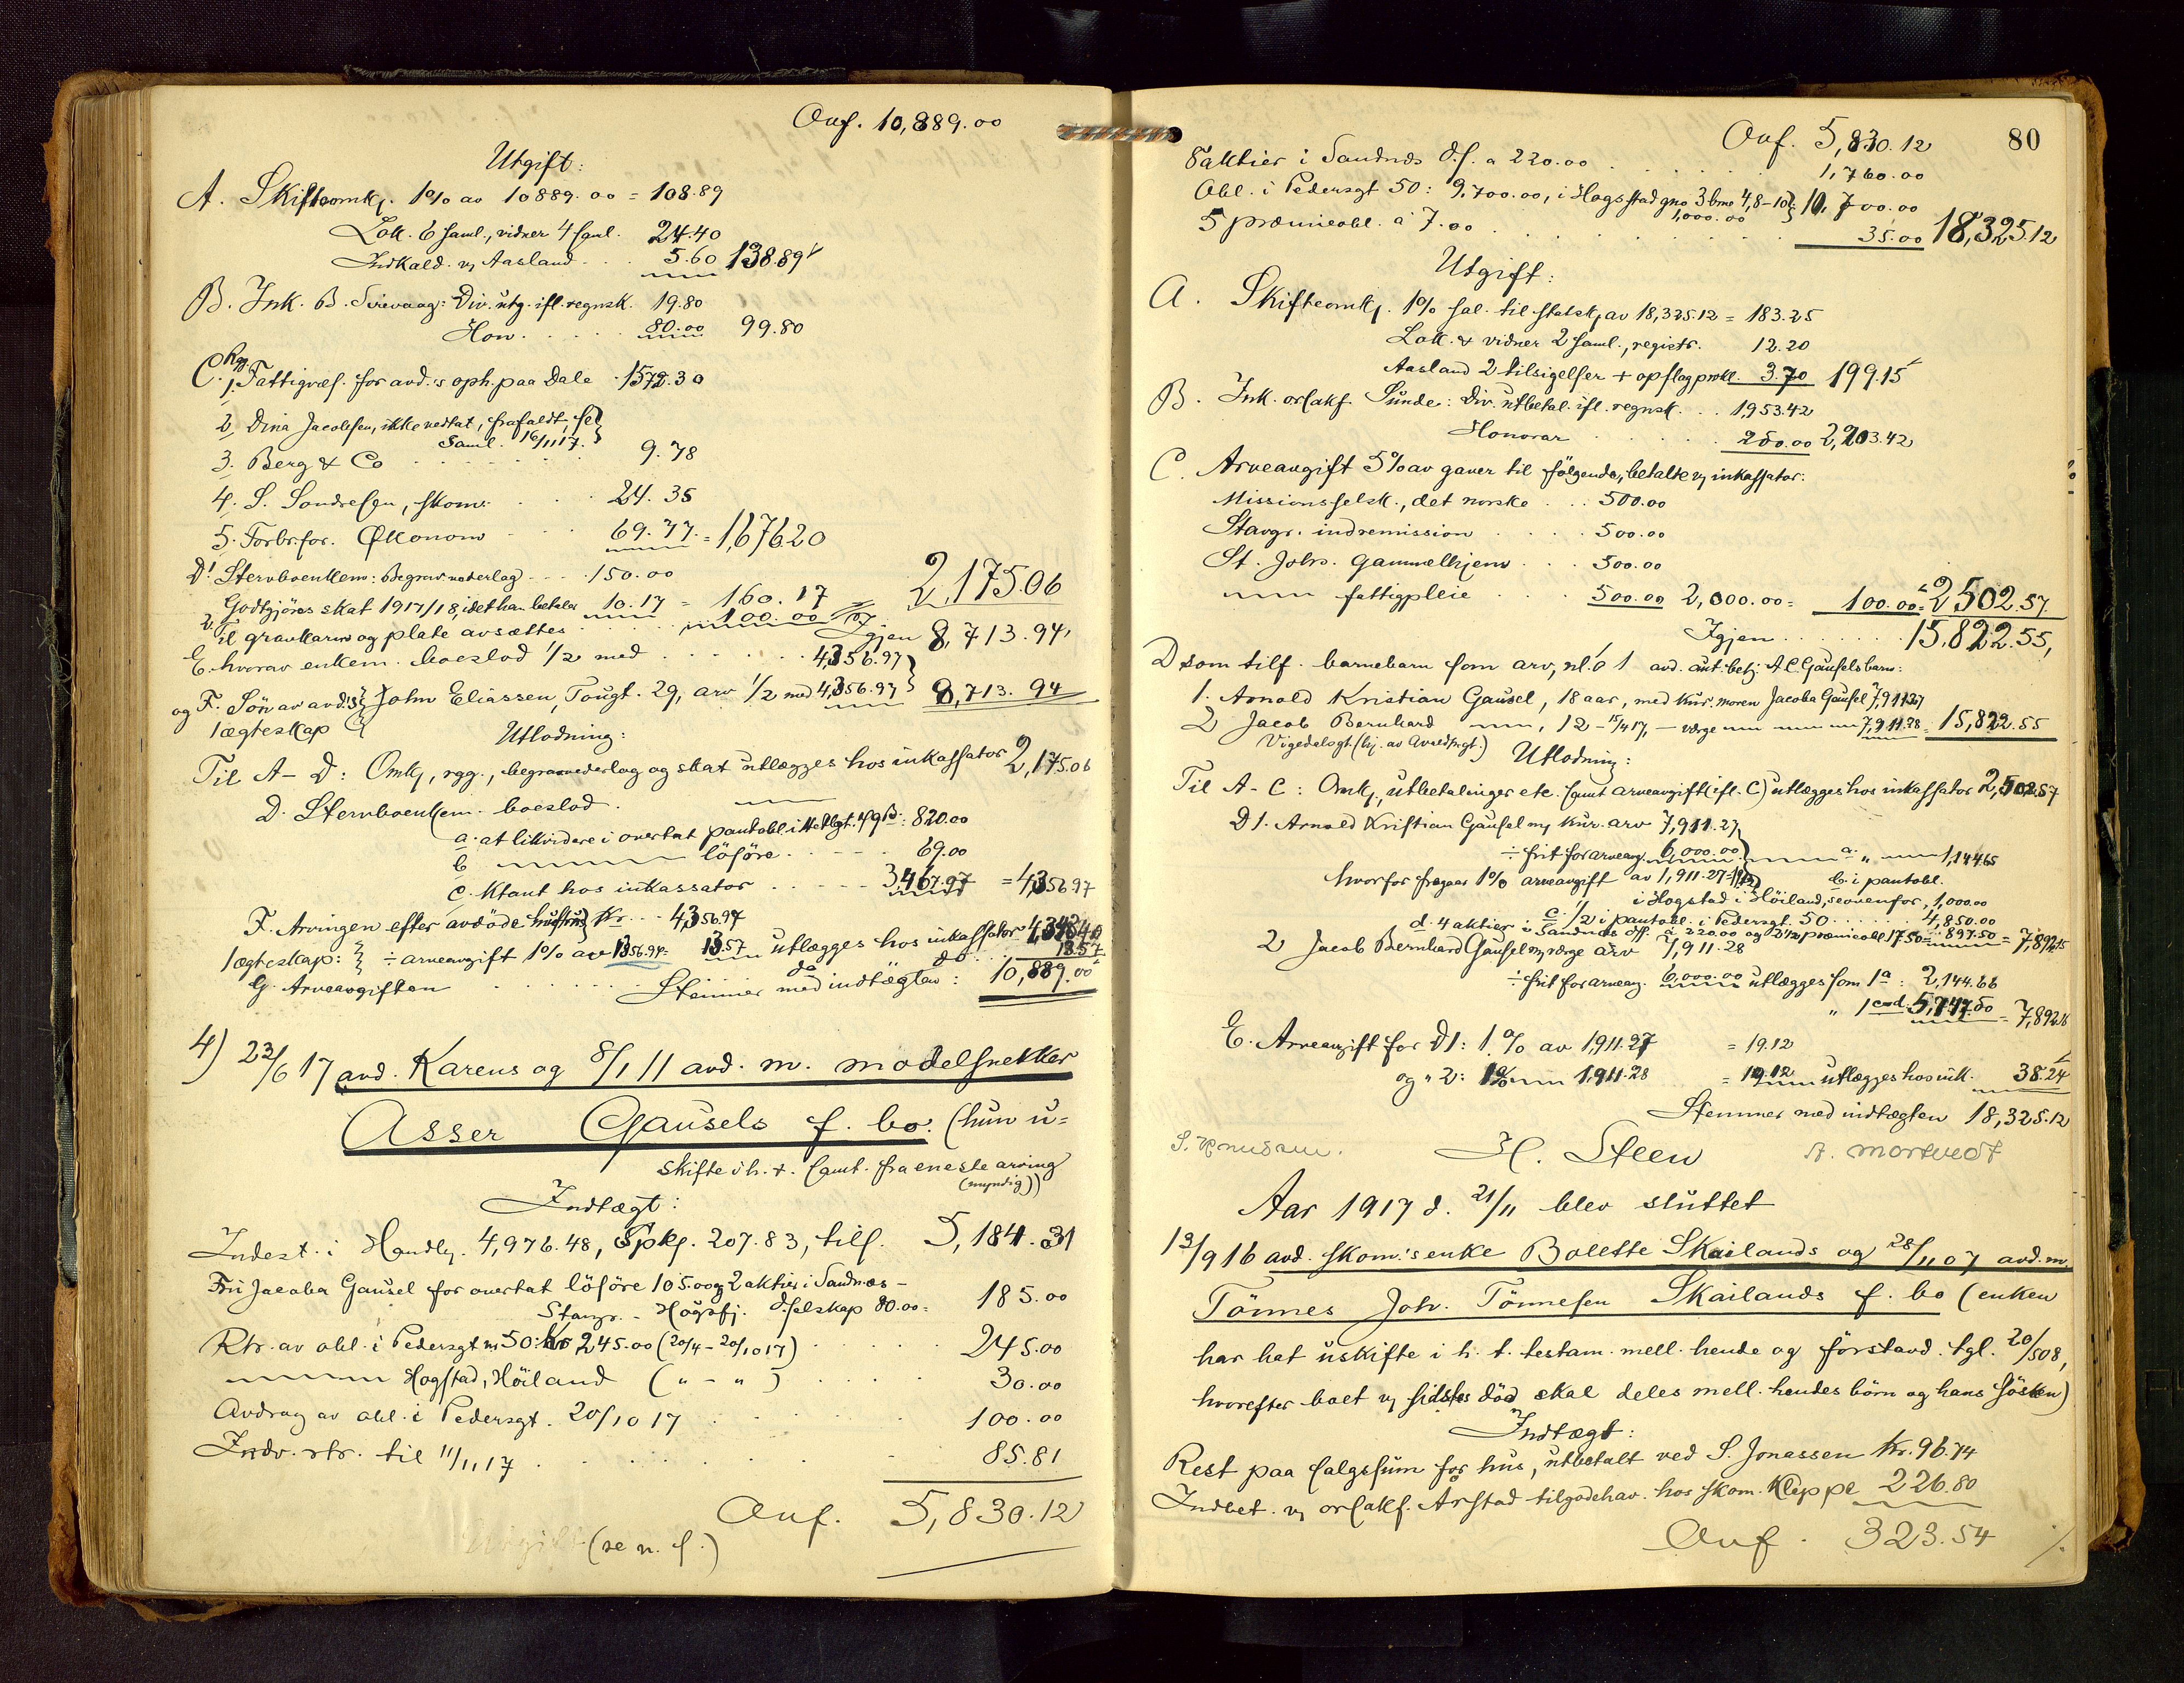 Ovf. 10,889.00
Utgift:
A. Skifteomk. 1% av 10889.00 = 108.89
Lok. 6 saml., vidner 4 saml. 24.40
Indkald. v, Aasland 5.60 138.89
B. Ink. B. Svevaag: Div. utg. ifl. regnsk. 19.80
Hon. 80.00 99.80
C. Rgg.
1. Fattigvæs. for avd.s oph. paa Dale 1572.30
2, Dina Jacobsen, ikke vedtat, frafaldt, se
saml. 16/11 17.
3. Berg & Co 9.78
4. S. Sondresen, skom. 24.35
5. Forbr.for. Økonom 69.77 = 1,676.20
D1. Stervboenkem: Begrav.vederlag 150.00
Godtgjöres skat 1917/18, idet han betaler 10.17 = 160.17
2, Til gravkarm og plate avsættes 100.00 2,175.06
Igjen 8,713.94,
E. hvorav enkem. boeslod 1/2 med 4,356.97
og F. Sön av avd.s 1 ægteskap John Eliassen, Tougt. 29, arv 1/2 med 4,356.97 8,713.94
Utlodning:
Til A - D: Omk., rgg., begravvederlag og skat utlægges hos inkassator 2,175.06
D. Stervboenkem. boeslod.
a. at likvidere i overtat pantobl. i Hetlgt. 49B: 820.00
b löföre 69.00
c. Ktant hos inkassator 3,467.97 = 4,356.97
F. Arvingen efter avdöde hustrus Kr. 4,356.97
1 ægteskap: ÷ arveavgift 1% av 1356.97 = 13.57 utlægges hos inkassator
G. Arveavgiften do do 13.57
Stemmer med indtægten: 10,889.00
4) 23/6 17 avd. Karens og 8/1 11 avd. m. modelsnekker
Asser Gausels f. bo. (hun u-
skifte i h. t. samt. fra eneste arving
(myndig))
Indtægt:
Indest. i Handlb. 4,976.48, Spks. 207.83, tils. 5,184.31
Fru Jacoba Gausel for overtat löföre 105.00 og 2 aktier i Sandnæs -
Stavgr. - Högsfj. d/selskap 80.00 = 185.00
Rtr. av obl. i Pedersgt n. 50: Kr. 245.00 (20/4 - 20/10 17) 245.00
Hogstad, Höiland ( " - " ) 30.00
Avdrag av obl. i Pedersgt. 20/10 17 100.00
Indv. rtr. til 11/11 17 85.81
Ovf. 5,830.12
Utgift (se n. s.)
80
Ovf. 5,830.12
8 aktier i Sandnæs d.s. a 220.00 1,760.00
Obl. i Pedersgt 50: 9,700.00, i Hogstad gno 3 bno 4,8-10: 10,700.00
1,000.00
5 præmieobl. à 7.00 35.00 18,325.12
Utgift:
A. Skifteomk. 1% sal. til statsk. av 18,325.12 = 183.25
Lok. & vidner 2 saml., registr. 12.20
Aasland 2 tilsigelser + opslag prokl. 3.70 199.15
B. Ink. orsakf. Sunde: Div. utbetal. ifl. regnsk. 1,953.42
Honorar 250.00 2,203.42
C. Arveavgift 5% av gaver til følgende, betalte v, inkassator:
Missionsselsk., det norske 500.00
Stavgr. indremission 500.00
St. Johs. gammelhjem 500.00
fattigpleie 500.00 2,000.00 = 100.00 = 2502.57
Igjen 15,822.55,
D som tilf. barnebarn som arv, nl. 1 avd. A. C. Gausels barn:
1. Arnold Kristian Gausel, 18 aar, med kur. moren Jacoba Gausel 7,911.27
2 Jacob Bernhard, 12 - 15/4 17, - værge 7,911.28 = 15,822.55
Vigedalsgt.
Utlodning:
Til A - C: Omk., utbetalinger etc. samt arveavgift (ifl. C) utlægges hos inkassator 2,502.57
D1. Arnold Kristian Gausel m, kur. arv 7,911.27
÷ frit for arveavg. 6,000.00 a. " 1,144.65
hvorfor fragaar 1% arveavgift av 1,911.27 b. i pantobl.
i Hogstad i Höiland, se ovenfor, 1,000.00
c. 1/2 i pantobl. i Pedersgt. 50 4,850.00
d. 4 aktier i Sandnæs d/s. à 220.00 og 2 1/2 præmieobl. 17.50 = 897.50 = 7,892.15
2 Jacob Bernhard Gausel m, værge arv 7,911.28
÷ frit for arveavg. 6,000.00 utlægges som 1a: 2,144.66
" 1 c og d. 5,747.50 = 7,892.16
E. Arveavgift for D1: 1% av 1,911.27 = 19.12
og " 2: 1% 1,911.28 = 19.12 utlægges hos ink. 38.24
Stemmer med indtægten 18,325.12
S. Knudsen. H. Steen A. Mortvedt
Aar 1917 d. 21/11 blev sluttet
13/9 16 avd. skom.s enke Bolette Skailands og 28/11 07 avd. m.
Tönnes Joh. Tönnesen Skailands f. bo (enken
har hat uskifte i h. t. testam. mell. hende og förstavd. tgl. 20/5 08,
hvorefter boet v, sidstes död skal deles mell. hendes börn og hans söskn)
Indtægt:
Rest paa salgssum for hus, utbetalt ved S. Jonassen Kr. 96.74
Indbet. v, orsakf. Arstad tilgodehav. hos skom. Kleppe 226.80
Ovf. 323.54 ./.